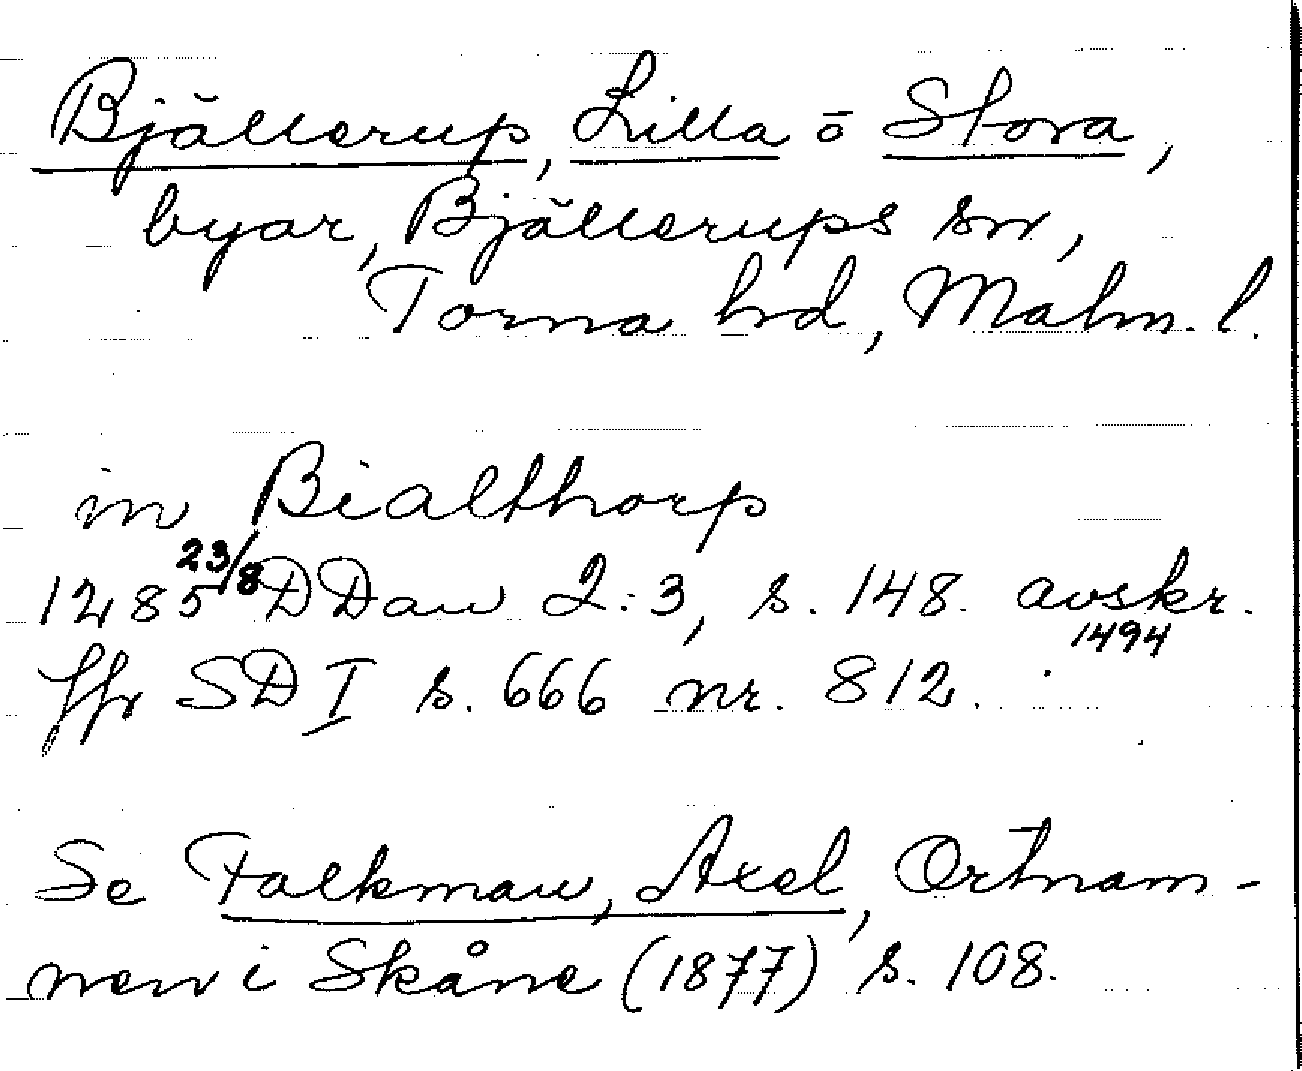 Bjällerup, Lilla o Stora,
byar, Bjällerups sn,
Torna hd, Malm. l.
in Bialthorp
1285 23/8 DDan 2:3, s. 148. avskr.
1494
Jfr SD I s. 666 nr. 812.
Se Falkman, Axel, Ortnam-
nen i Skåne (1877) s. 108.